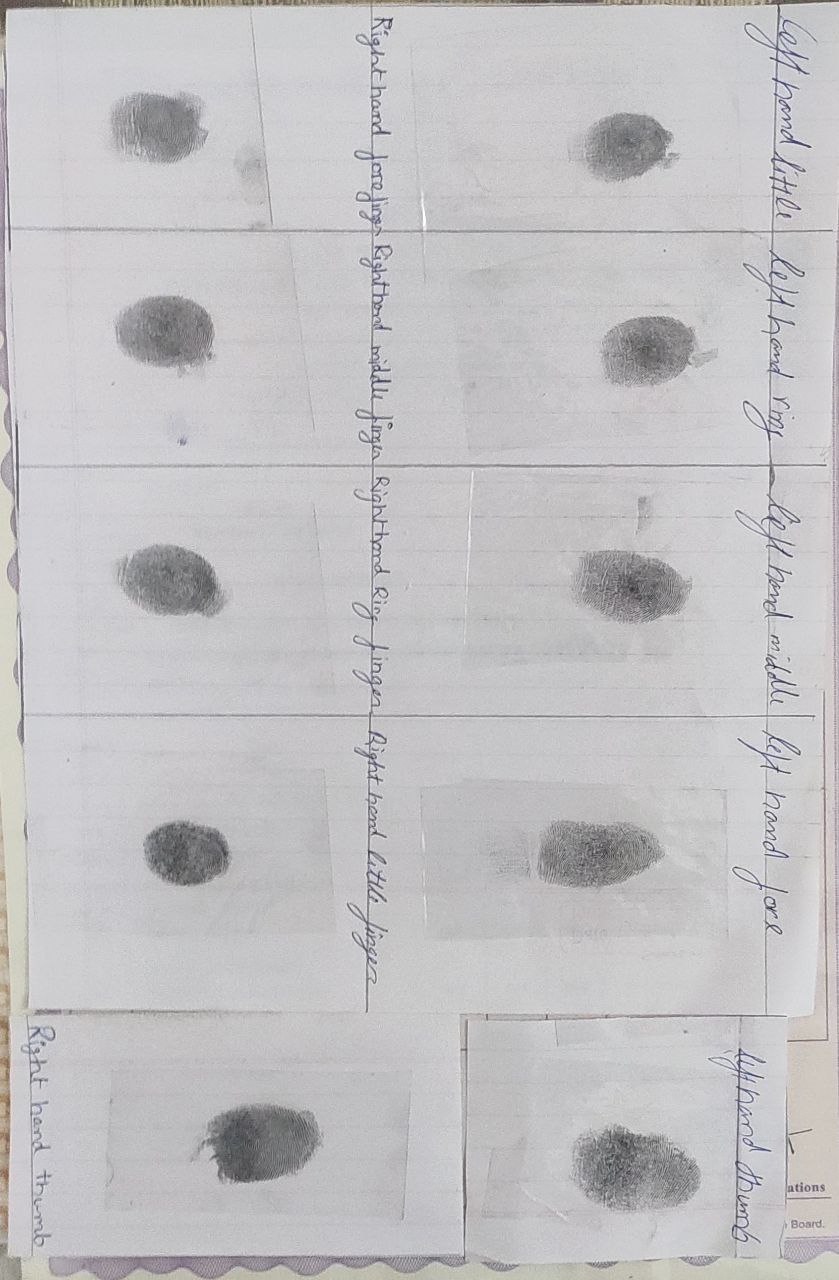 Left hand little
left hand ring
left hand middle
left hand fore
Right hand forefinger
Right hand middle finger
Right hand Ring finger
Right hand little finger
left hand thumb
Right hand thumb
ations
Board.